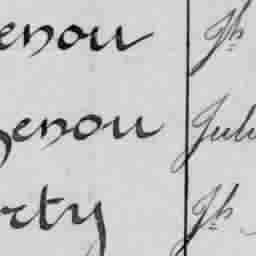 enou Jh
genou Jul
rty Jh